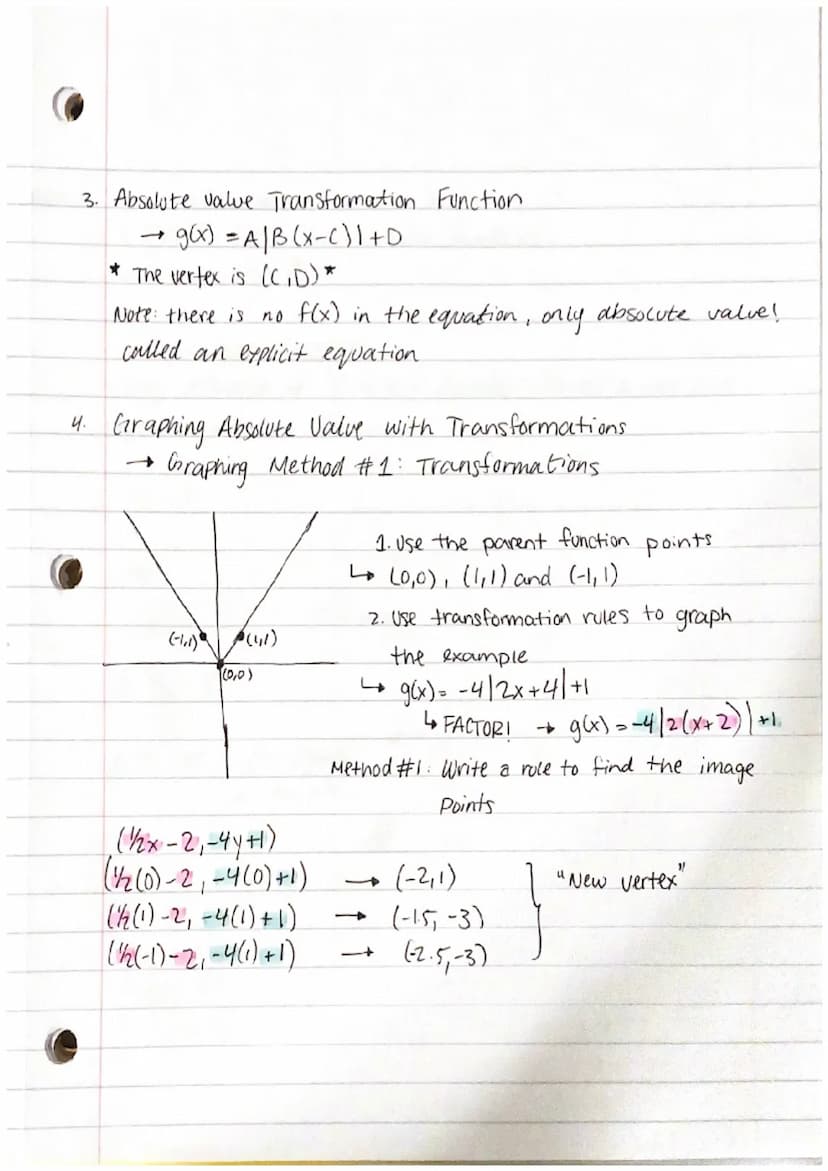 3. Absolute value Transformation Function
→ g(x) = A|B(x-C)|+D
* The vertex is (C,D)*
Note: there is no f(x) in the equation, only absolute value!
called an explicit equation
4. Graphing Absolute Value with Transformations
→ Graphing Method #1: Transformations
1. Use the parent function points
↳ (0,0), (1,1) and (-1,1)
2. Use transformation rules to graph
the example
↳ g(x)= -4|2x+4|+1
↳ FACTOR! → g(x) = -4|2(x+2)|+1
(-1,1) (1,1)
(0,0)
Method #1: Write a rule to find the image
Points
(1/2x-2,-4y+1)
(1/2(0)-2,-4(0)+1) → (-2,1) "New vertex"
(1/2(1)-2,-4(1)+1) → (-1.5,-3)
(1/2(-1)-2,-4(1)+1) → (-2.5,-3)